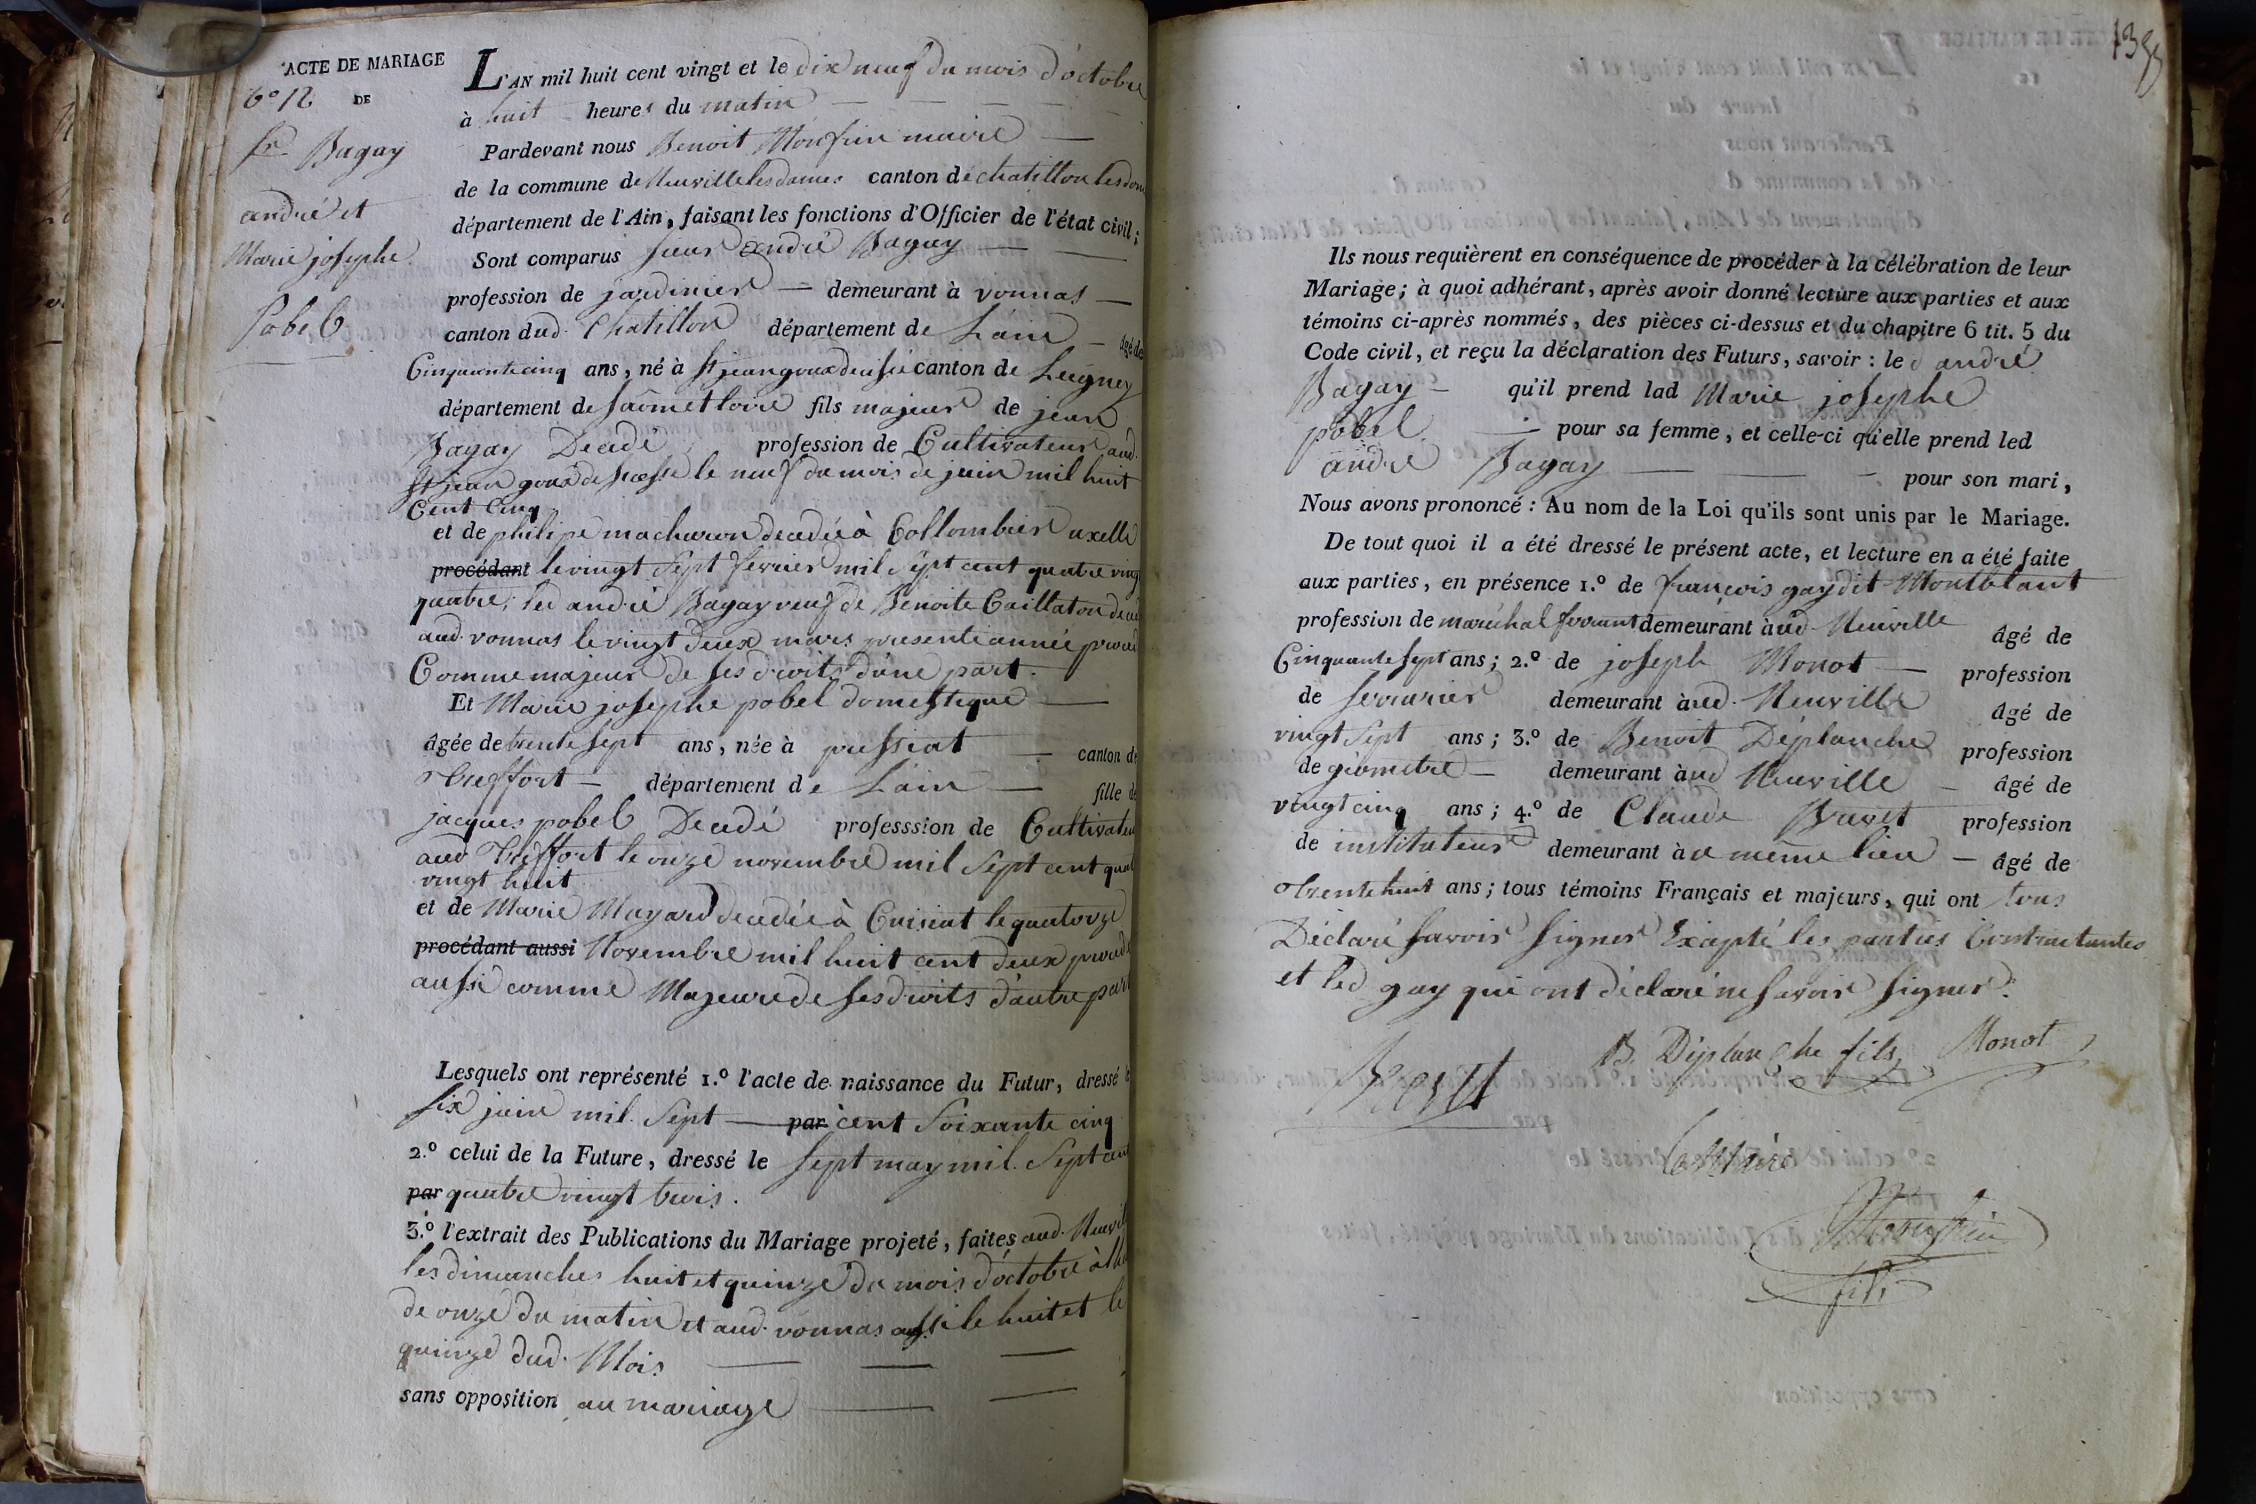 ACTE DE MARIAGE
DE
Sr Bagay
andré et
Marie josephe
Pobel
L'AN mil huit cent vingt et le dix neuf du mois d'octobre
à huit heures du matin
Pardevant nous Benoit Monfrin maire
de la commune de Neuville les dames canton de chatillon les dom
département de l'Ain, faisant les fonctions d'Officier de l'état civil;
Sont comparus sieur andré Bagay
profession de jardinier demeurant à vonnas
canton dud. Chatillon département de L'ain âgé de
Cinquante cinq ans, né à St jean canton de Lugney
département de Saône et loire fils majeur de jean
Bagay Décédé profession de Cultivateur aud.
St jean le neuf du mois de juin mil huit
Cent Cinq
et de philipe macharon decedée à Collombier uxelle
procédant le vingt sept fevrier mil sept cent quatre vingt
quatre; led andré Bagay veuf de Benoite Caillaton deced
aud. vonnas le vingt deux mars presente année proced
Comme majeur de ses droits d'une part.
Et Marie josephe pobel domestique
âgée de trente sept ans, née à pressiat canton de
treffort département de L'ain fille de
jacques pobel Decedé professsion de Cultivateur
aud treffort le onze novembre mil sept cent quat
vingt huit
et de Marie Mayard decedée à Cuisiat le quatorze
procédant aussi Novembre mil huit cent deux procede
aussi comme Majeure de ses droits d'autre part
Lesquels ont représenté 1.º l'acte de naissance du Futur, dressé le
six juin mil sept par cent soixante cinq
2.º celui de la Future, dressé le sept may mil sept cent
par quatre vingt trois.
3.º l'extrait des Publications du Mariage projeté, faites aud. Neuvil
les dimanches huit et quinze du mois d'octobre à l'heu
de onze du matin et aud. vonnas aussi le huit et le
quinze dud. Mois
sans opposition au mariage
Ils nous requièrent en conséquence de procéder à la célébration de leur
Mariage; à quoi adhérant, après avoir donné lecture aux parties et aux
témoins ci-après nommés, des pièces ci-dessus et du chapitre 6 tit. 5 du
Code civil, et reçu la déclaration des Futurs, savoir : le d andré
Bagay qu'il prend lad Marie josephe
pobel pour sa femme, et celle-ci qu'elle prend led
andré Bagay pour son mari,
Nous avons prononcé : Au nom de la Loi qu'ils sont unis par le Mariage.
De tout quoi il a été dressé le présent acte, et lecture en a été faite
aux parties, en présence 1.º de françois gay dit Montblant
profession de maréchal ferrant demeurant à aud. Neuville âgé de
Cinquante sept ans; 2.º de joseph Monot profession
de serrurier demeurant à aud. Neuville âgé de
vingt sept ans; 3.º de Benoit Déplanche profession
de géometre demeurant à aud Neuville âgé de
vingt cinq ans; 4.º de Claude Buvet profession
de instituteur demeurant à ce même lieu âgé de
trente huit ans; tous témoins Français et majeurs, qui ont tous
Déclaré savoir signer Exapté les parties Contractantes
et led gay qui ont déclaré ne savoir signer.
B. Déplanche fils Monot
Le Maire
Monfrin
fils